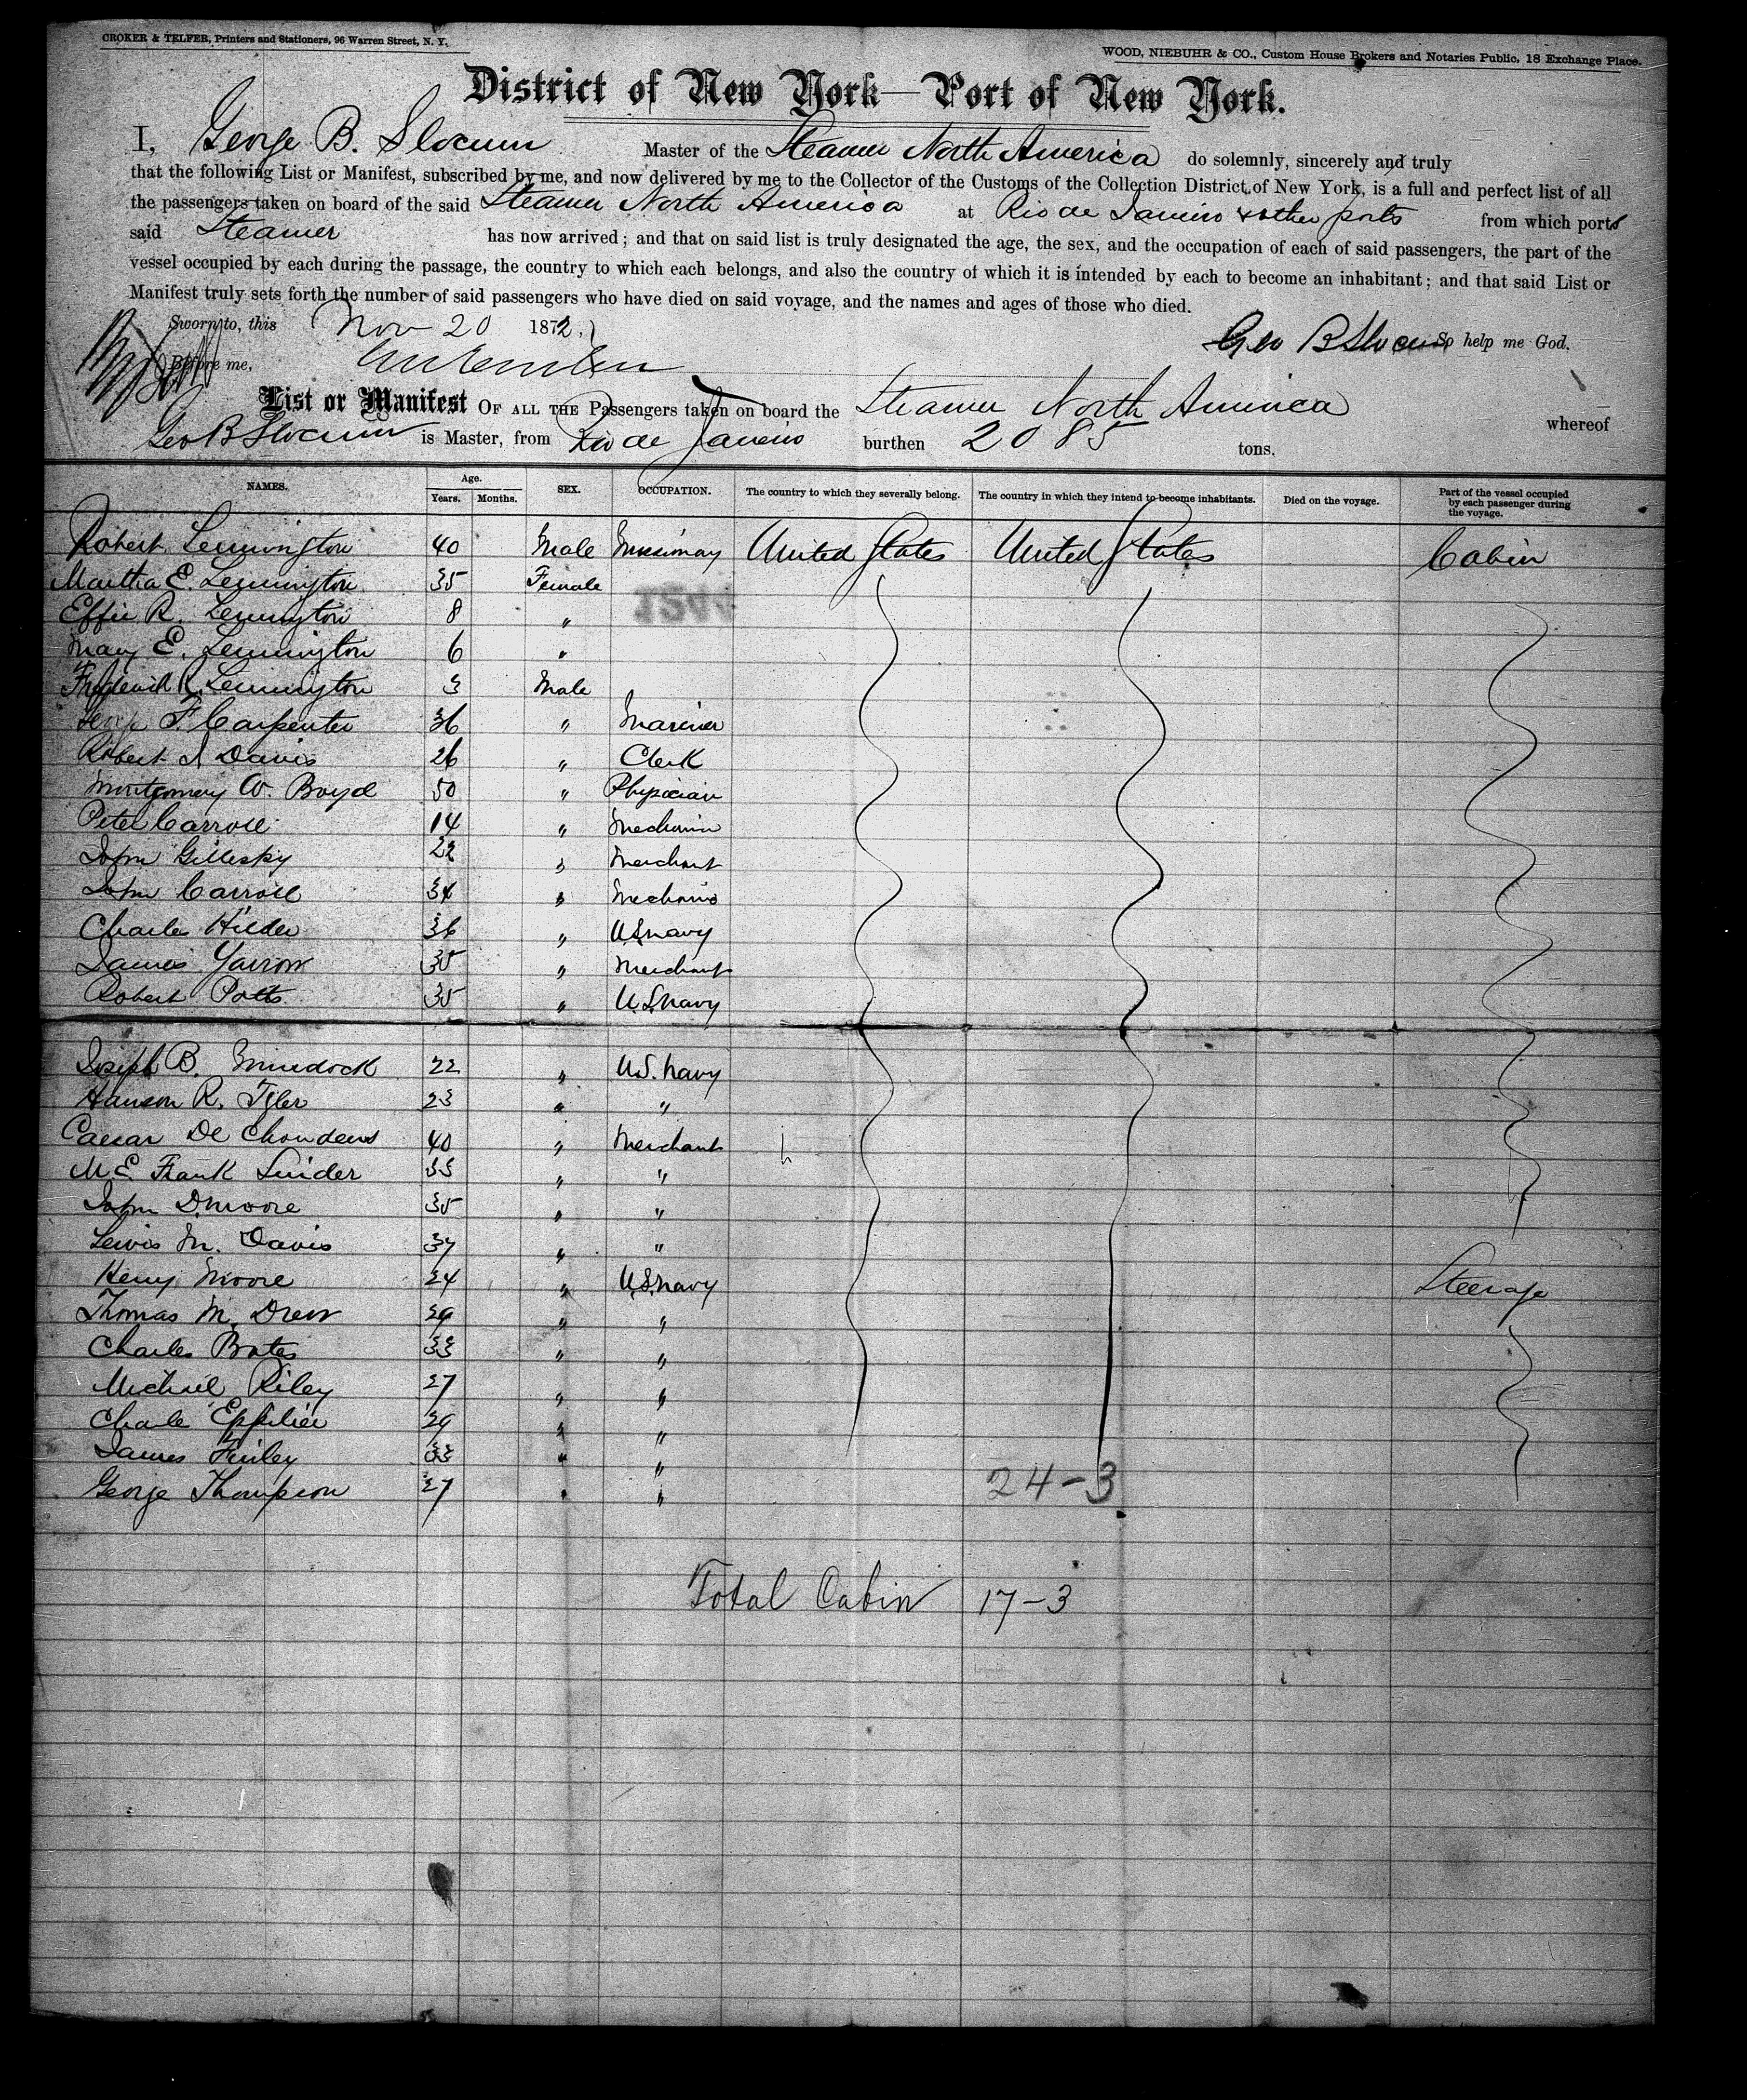 CROKER & TELFER, Printers and Stationers, 96 Warren Street, N. Y.
WOOD, NIEBUHR & CO., Custom House Brokers and Notaries Public, 18 Exchange Place.
District of New York—Port of New York.
I, George B. Slocum Master of the Steamer North America do solemnly, sincerely and truly
that the following List or Manifest, subscribed by me, and now delivered by me to the Collector of the Customs of the Collection District of New York, is a full and perfect list of all
the passengers taken on board of the said Steamer North America at Rio de Janeiro & other ports from which ports
said Steamer has now arrived; and that on said list is truly designated the age, the sex, and the occupation of each of said passengers, the part of the
vessel occupied by each during the passage, the country to which each belongs, and also the country of which it is intended by each to become an inhabitant; and that said List or
Manifest truly sets forth the number of said passengers who have died on said voyage, and the names and ages of those who died.
Sworn to, this Nov 20 1872.
Geo B Slocum So help me God.
Before me,
List or Manifest OF ALL THE Passengers taken on board the Steamer North America whereof
Geo B Slocum is Master, from Rio de Janeiro burthen 2085 tons.
NAMES. Age. Years. Months. SEX. OCCUPATION. The country to which they severally belong. The country in which they intend to become inhabitants. Died on the voyage. Part of the vessel occupied by each passenger during the voyage.
Robert Lennington 40 Male Missionay United States United States Cabin
Martha E. Lennington 35 Female
Effie R. Lennington 8 "
Mary E. Lennington 6 "
Frederick R. Lennington 3 Male
George F. Carpenter 36 " Mariner
Robert Davis 26 " Clerk
Montgomery W. Boyd 50 " Physician
Peter Carroll 14 " Mechanic
John Gillespy 22 " Merchant
John Carroll 34 " Mechanic
Charles Hilder 36 " U.S. Navy
James Yarrow 35 " Merchant
Robert Potts 35 " U.S. Navy
Joseph B. Murdock 22 " U.S. Navy
Hanson R. Tyler 23 " "
Caesar De 40 " Merchant
M. E. Frank Linder 33 " "
John D. Moore 35 " "
Lewis M. Davis 37 " "
Henry Moore 24 " U.S. Navy Steerage
Thomas M. Drew 29 " "
Charles Bates 33 " "
Michael Riley 27 " "
Charle 29 " "
James Finley 33 " "
George Thompson 27 " "
24-3
Total Cabin 17-3